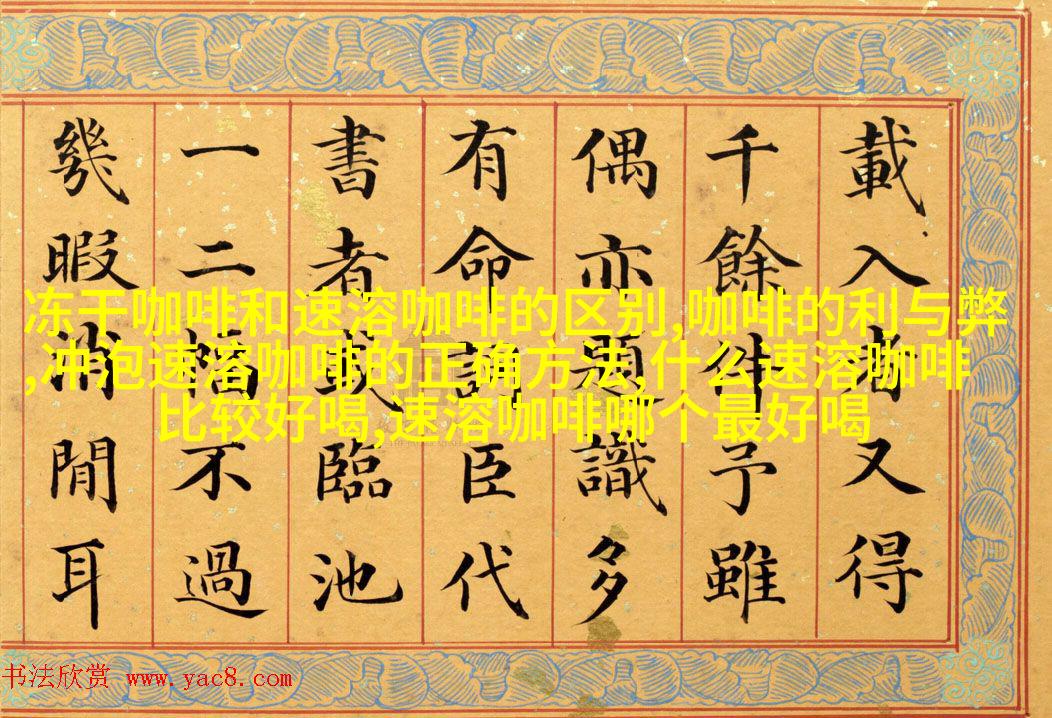 載入者又得
千餘件予雖
偶亦題識多
有命詞臣代
書者或臨池
一二幅不過
幾暇消閒耳
冻干咖啡和速溶咖啡的区别,咖啡的利与弊
,冲泡速溶咖啡的正确方法,什么速溶咖啡
比较好喝,速溶咖啡哪个最好喝
书法欣赏 www.yac8.com